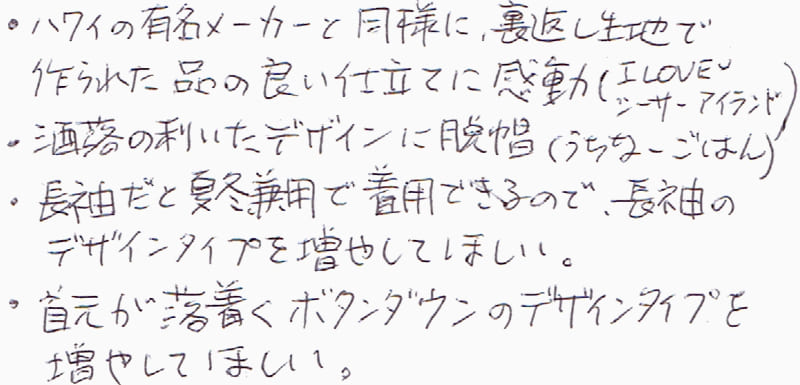 ・ハワイの有名メーカーと同様に、裏返し生地で
作られた品の良い仕立てに感動(I LOVE シーサーアイランド)
・洒落の利いたデザインに脱帽(うちなーごはん)
・長袖だと夏冬兼用で着用できるので、長袖の
デザインタイプを増やしてほしい。
・首元が落着くボタンダウンのデザインタイプを
増やしてほしい。